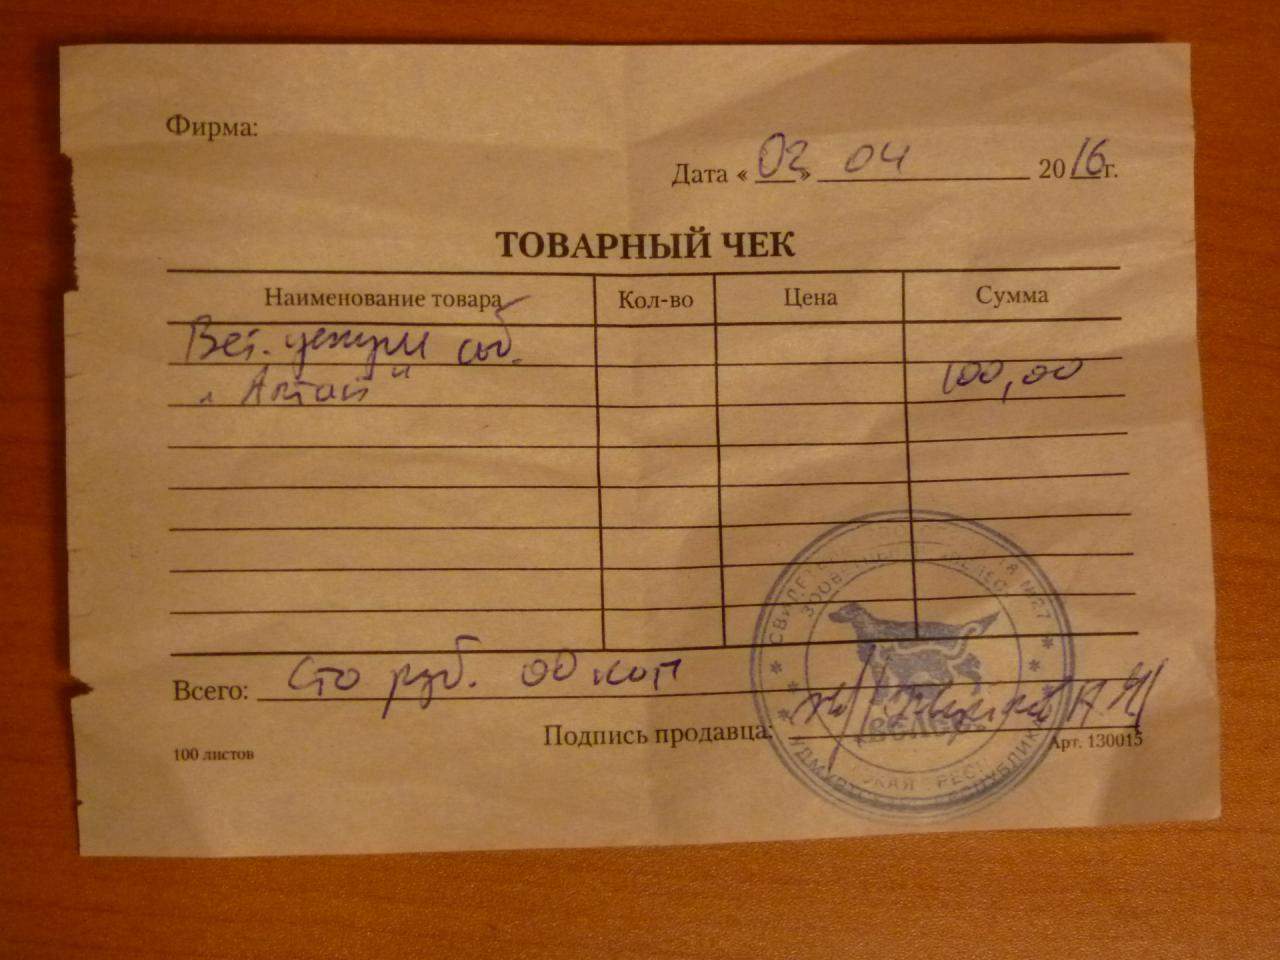 Фирма:
Дата «02» 04 2016г.
ТОВАРНЫЙ ЧЕК
Наименование товара Кол-во Цена Сумма
Вет. соб.
"Алтай" 100,00
Всего: Сто руб. 00 коп
Подпись продавца:
100 листов
Арт. 130015
ЗООВЕТЦЕНТР «ВЕЛЕС»
«ВЕЛЕС»
УДМУРТСКАЯ РЕСПУБЛИКА